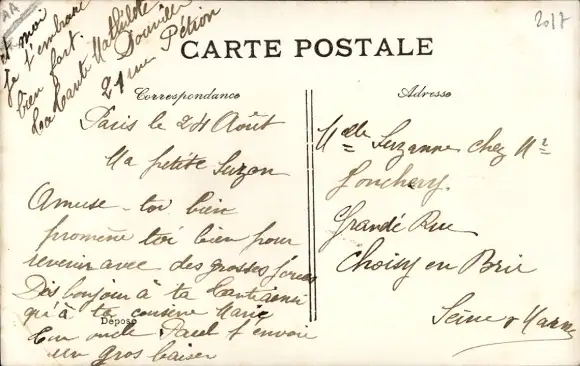 et moi
je t'embrasse
bien fort.
ta tante Mathilde
Douville
21 rue Pétion
AA
2017
CARTE POSTALE
Correspondance
Adresse
Paris le 24 Août
Ma petite Suzon
Amuse-toi bien
promène toi bien pour
revenir avec des grosses joues
Dis bonjour à ta tante ainsi
qu'à ta cousine Marie
Ton oncle Paul t'envoie
un gros baiser
Déposé
Melle Suzanne chez Mr
Jonchery.
Grande Rue
Choisy en Brie
Seine & Marne